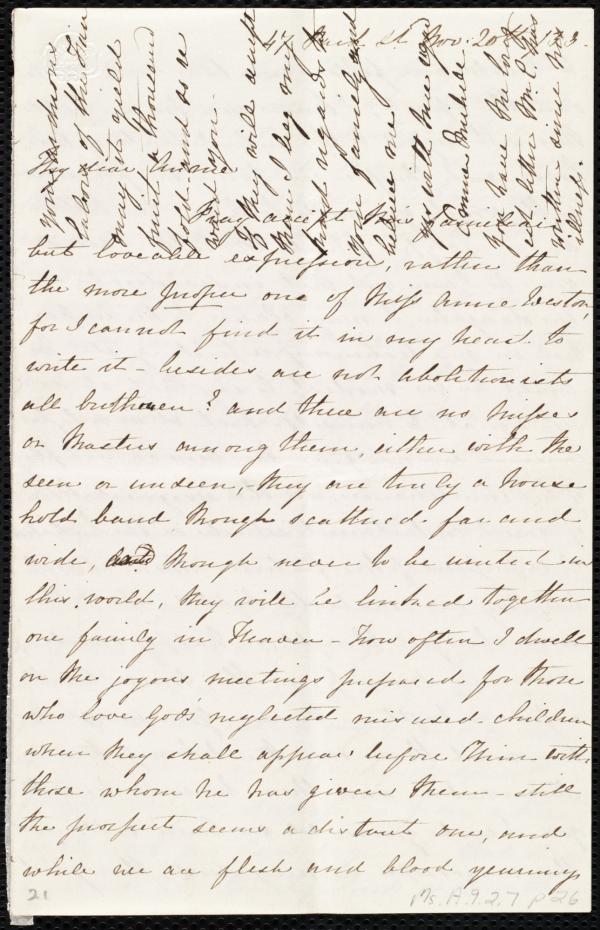 47 Paul St. Nov: 20th /53.
My dear Annie
Pray accept this familiar
but loveable expression, rather than
the more proper one of Miss Anne Weston,
for I cannot find it in my heart to
write it - besides are not abolitionists
all brethren? and there are no Misses
or Masters among them, either with the
seen or unseen, - they are truly a house
hold band though scattered far and
wide, though never to be united in
this world, they will be linked together
one family in Heaven - How often I dwell
on the joyous meetings prepared for those
who love God's neglected misused children
when they shall appear before Him with
those whom he has given them - still
the prospect seems a distant one, and
while we are flesh and blood yearnings
your
labour of
may it yield
just a thousand
fold - and so a
ward you.
They will unite
I beg my
kind regards
your family and
believe me
yrs with true
Emma Michell
you have the
letter Mr. C. has
written since his
illness.
21
Ms. A.9.2.7 p 26